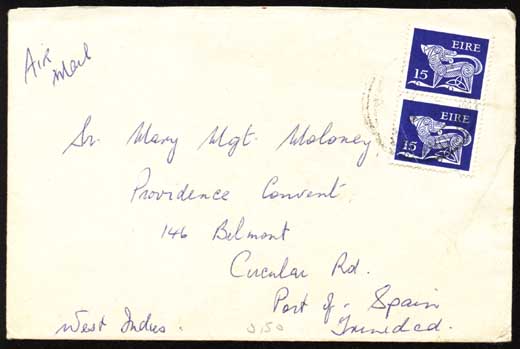 Air
Mail
EIRE
15
EIRE
15
Sr. Mary Mgt. Moloney,
Providence Convent
146 Belmont
Circular Rd.
Port of. Spain
West Indies. Trinidad.